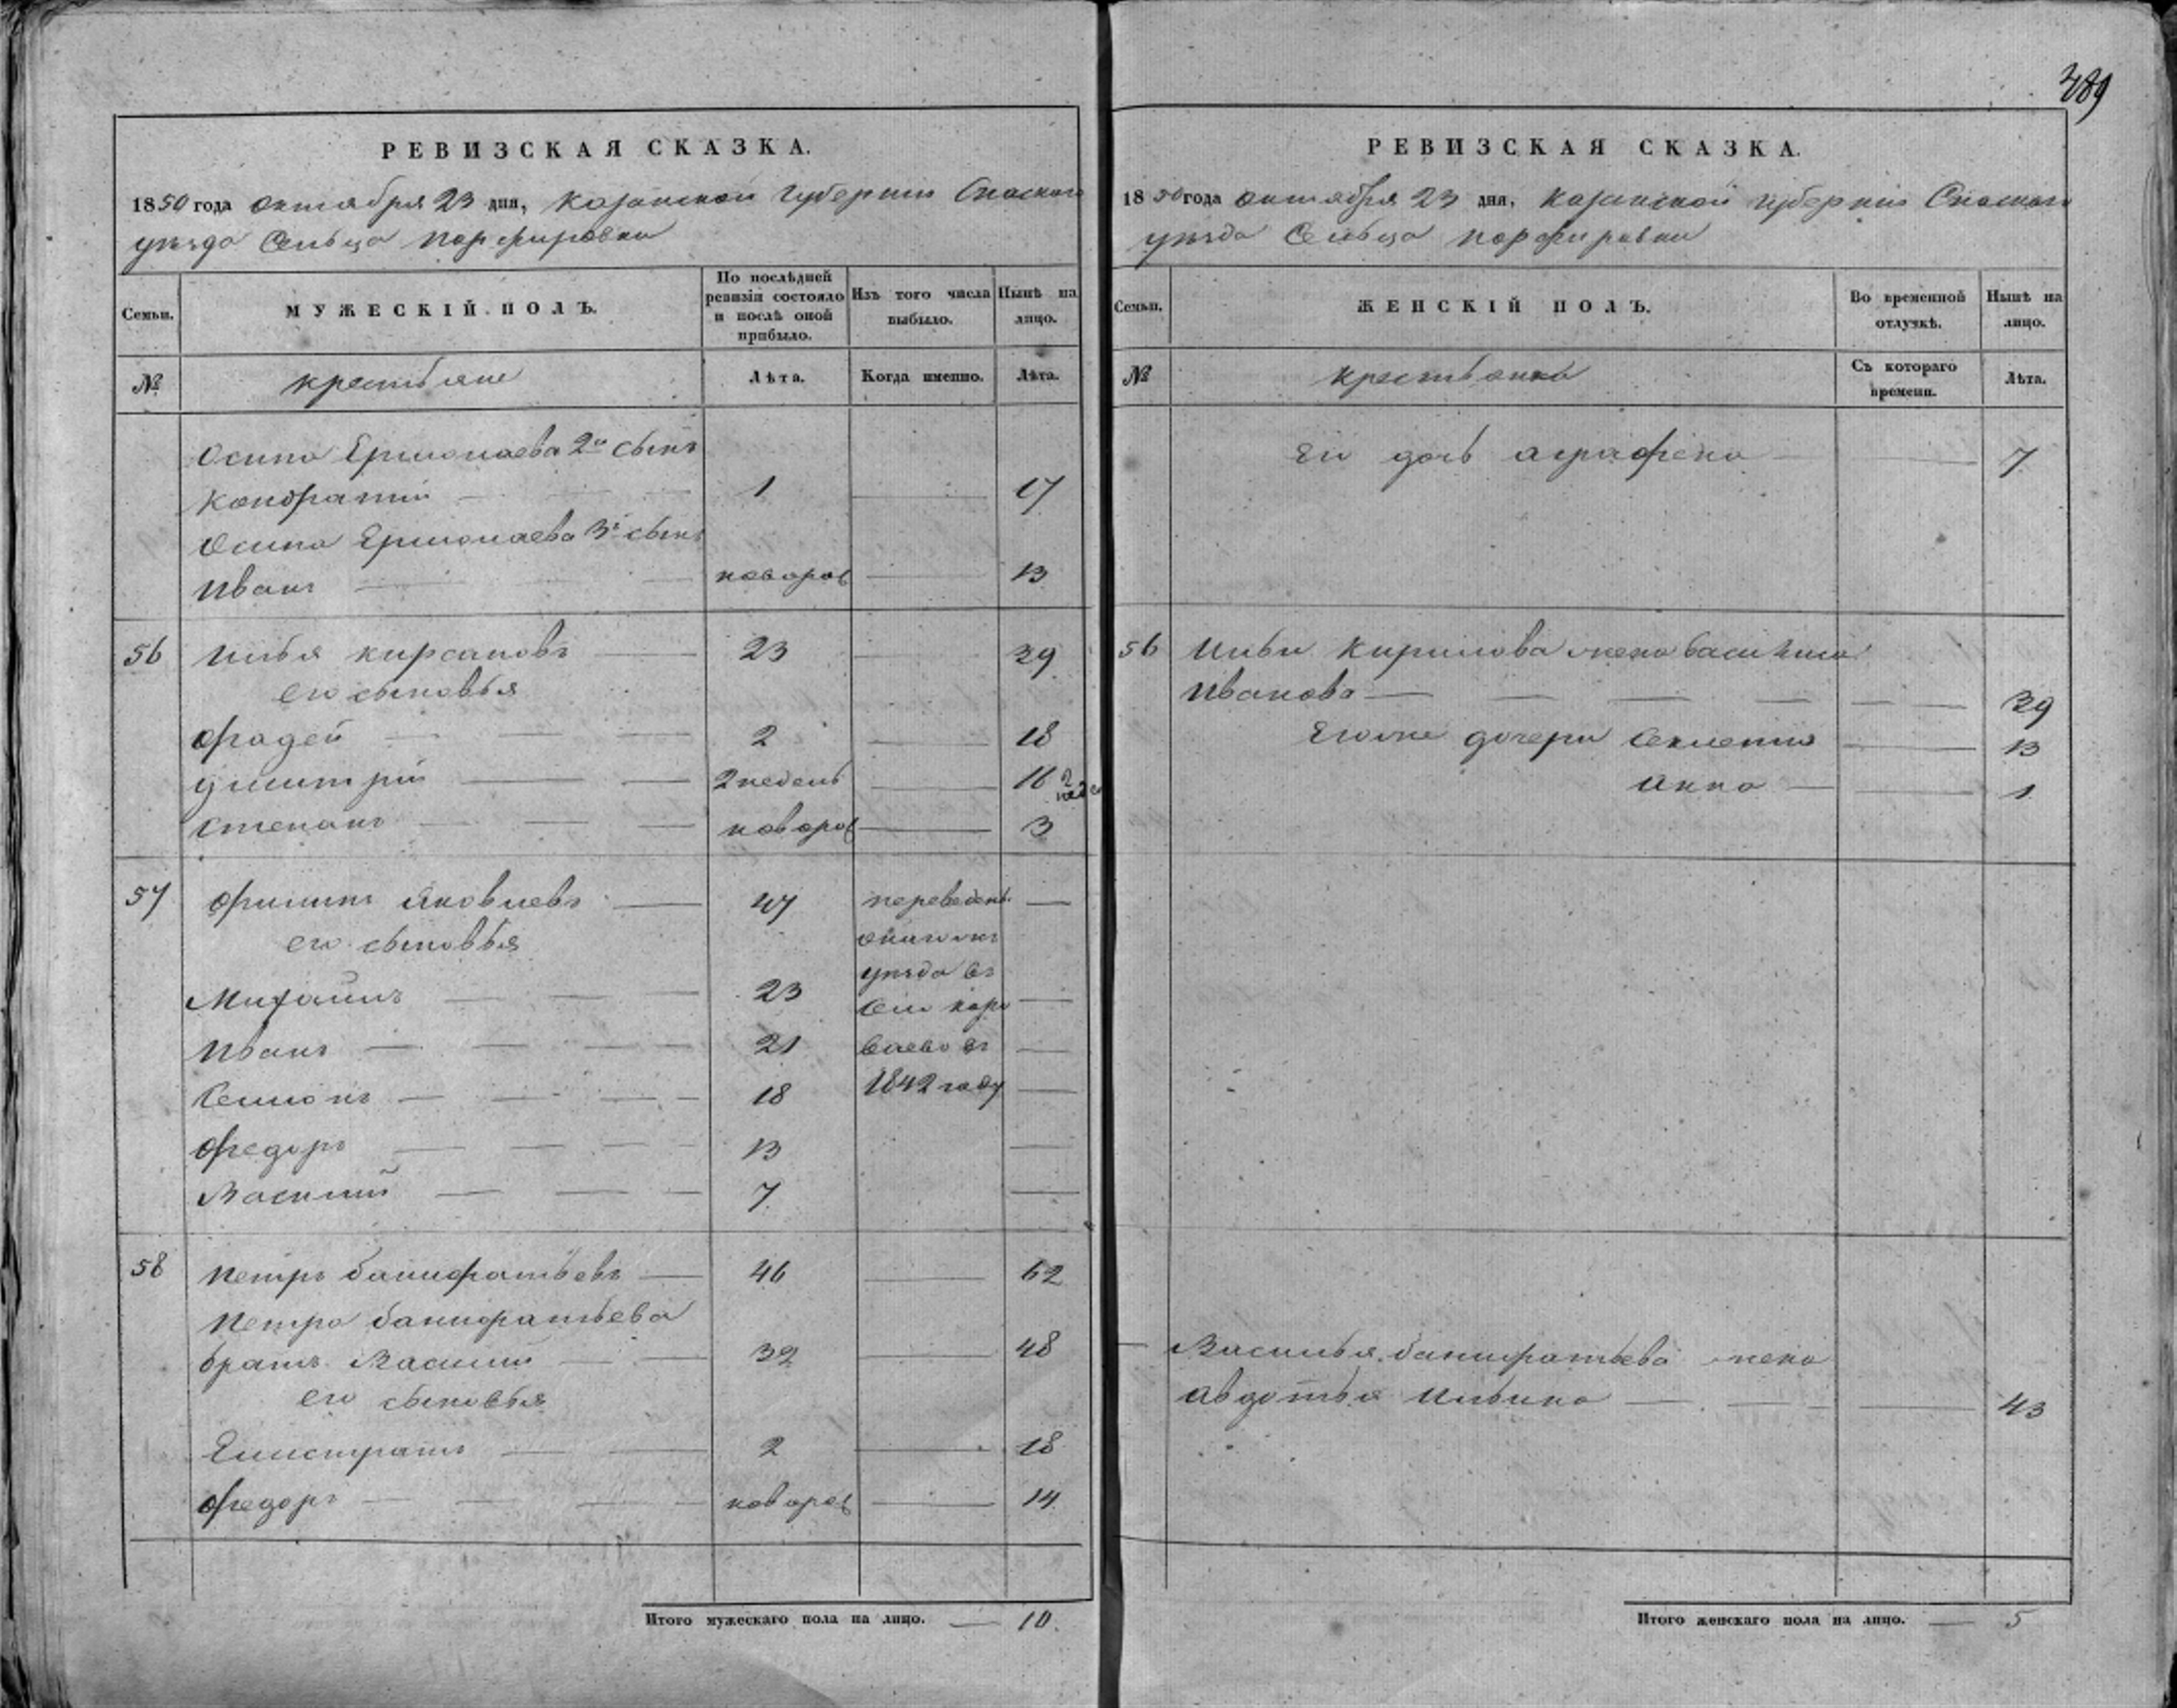 389
РЕВИЗСКАЯ СКАЗКА.
1850 года октября 23 дня, Казанской губернии Спаскаго
уѣзда Сельца Порфировки
Семьи. МУЖЕСКІЙ ПОЛЪ. По послѣдней ревизіи состояло и послѣ оной прибыло. Изъ того числа выбыло. Нынѣ на лицо.
№ крестьяне Лѣта. Когда именно. Лѣта.
Осипа Ермолаева 2й сынъ
Кондратій 1 17
Осипа Ермолаева 3й сынъ
Иванъ новорож 13
56 Илья Кирсановъ 23 39
его сыновья
Фадей 2 18
Дмитрій 2 недель 16 2 недел
Степанъ новорож 3
57 Филипъ Яковлевъ 47 переведенъ
его сыновья
уѣзда въ
Михайла 23
Иванъ 21
Семионъ 18 1842 году
Федоръ 13
Василий 7
58 Петръ Панифатьевъ 46 62
Петра Панифатьева
братъ Василий 32 48
его сыновья
Елистратъ 2 18
Федоръ новорож 14
Итого мужескаго пола на лицо. 10.
РЕВИЗСКАЯ СКАЗКА.
1850 года октября 23 дня, Казанской губернии Спаскаго
уѣзда Сельца Порфировки
Семьи. ЖЕНСКІЙ ПОЛЪ. Во временной отлучкѣ. Нынѣ на лицо.
№ крестьянки Съ котораго времени. Лѣта.
Ея дочь Аграфена 7
56 Ильи Кирилова жена Василиса
Иванова 39
Его же дочери Секлетия 13
Анна 1
Василья Панифатьева жена
Авдотья Ильина 43
Итого женскаго пола на лицо. 5